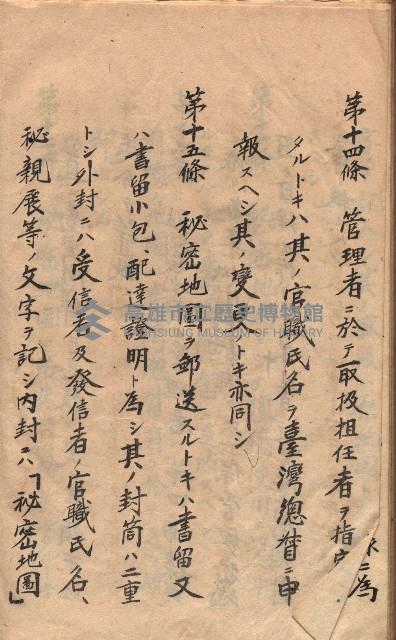 第十四條 管理者ニ於テ取扱担任者ヲ指定
タルトキハ其ノ官職氏名ヲ臺灣總督ニ申
報スヘシ其ノ變更トキ亦同シ
第十五條 秘密地圖ヲ郵送スルトキハ書留又
ハ書留小包配達證明ト為シ其ノ封筒ハ二重
トシ外封ニハ受信者及發信者ノ官職氏名、
秘親展等ノ文字ヲ記シ内封ニハ「秘密地圖」
ニ為
高雄市立歷史博物館
KAOHSIUNG MUSEUM OF HISTORY